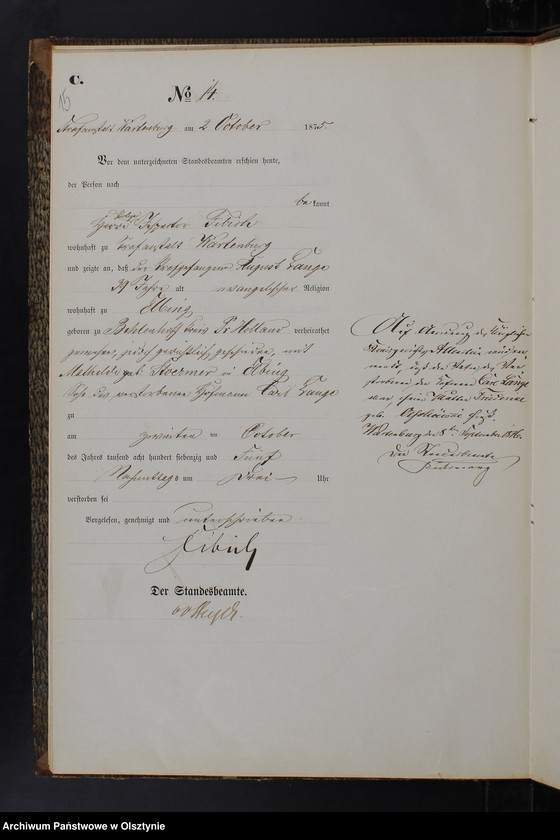 C.
15
No 14.
Strafanstalt Wartenburg am 2. October 1875
Vor dem unterzeichneten Standesbeamten erschien heute,
der Person nach
bekannt
Herr Inspector Fibich
wohnhaft zu Strafanstalt Wartenburg
und zeigte an, daß der Strafgefangene August Lange
39 Jahre alt evangelischer Religion
wohnhaft zu Elbing
geboren zu Kreis Pr. Holland verheirathet
gewesen, jedoch gerichtlich geschieden, mit
Mathilde geb. Stoermer in Elbing
Sohn des verstorbenen Hofmann Carl Lange
zu
am zweiten October
des Jahres tausend acht hundert siebenzig und Fünf
Nachmittags um Drei Uhr
verstorben sei
Vorgelesen, genehmigt und unterschrieben
Fibich
Der Standesbeamte.
Auf Anordnung des Königlichen
Kreisgerichts Allenstein
daß der Vater des Ver-
storbenen der Carl Lange
war, seine Mutter Friederike
geb.
Wartenburg den 8ten September 1876.
Der Standesbeamte
Archiwum Państwowe w Olsztynie